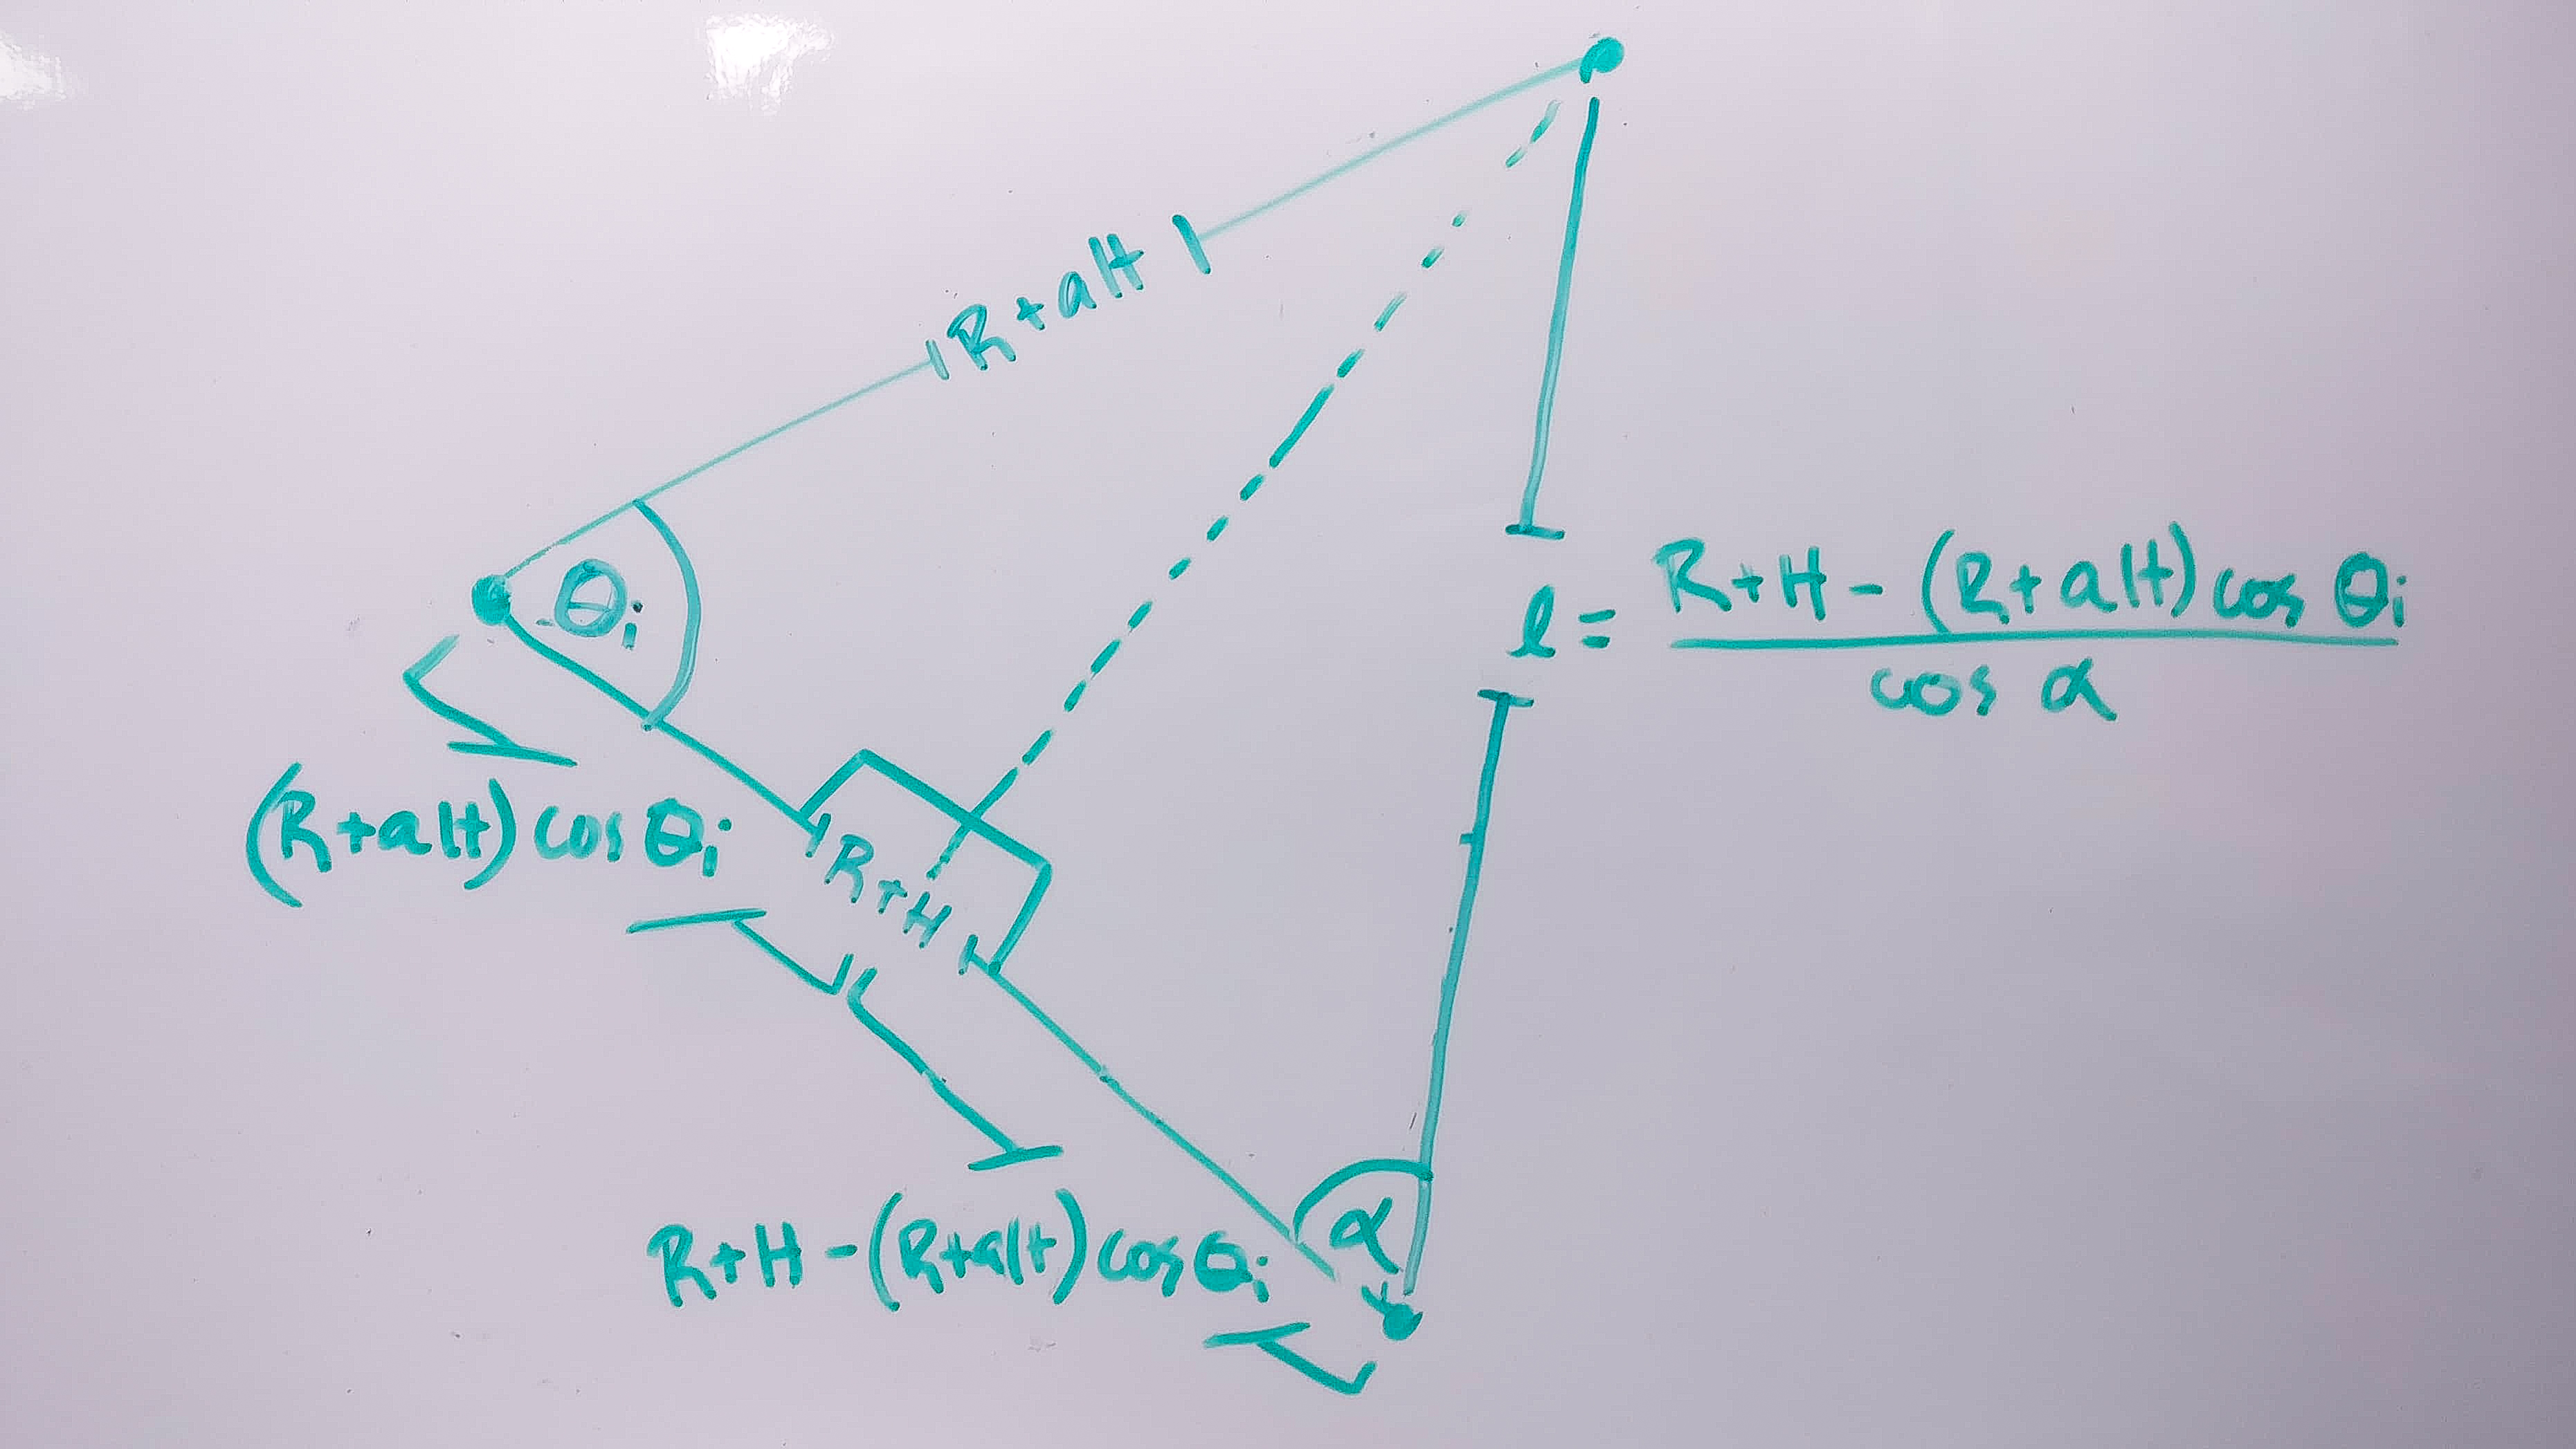 R+alt
θi
l = R+H-(R+alt)cos θi
cos α
(R+alt)cosθi
R+H
R+H-(R+alt)cosθi
α